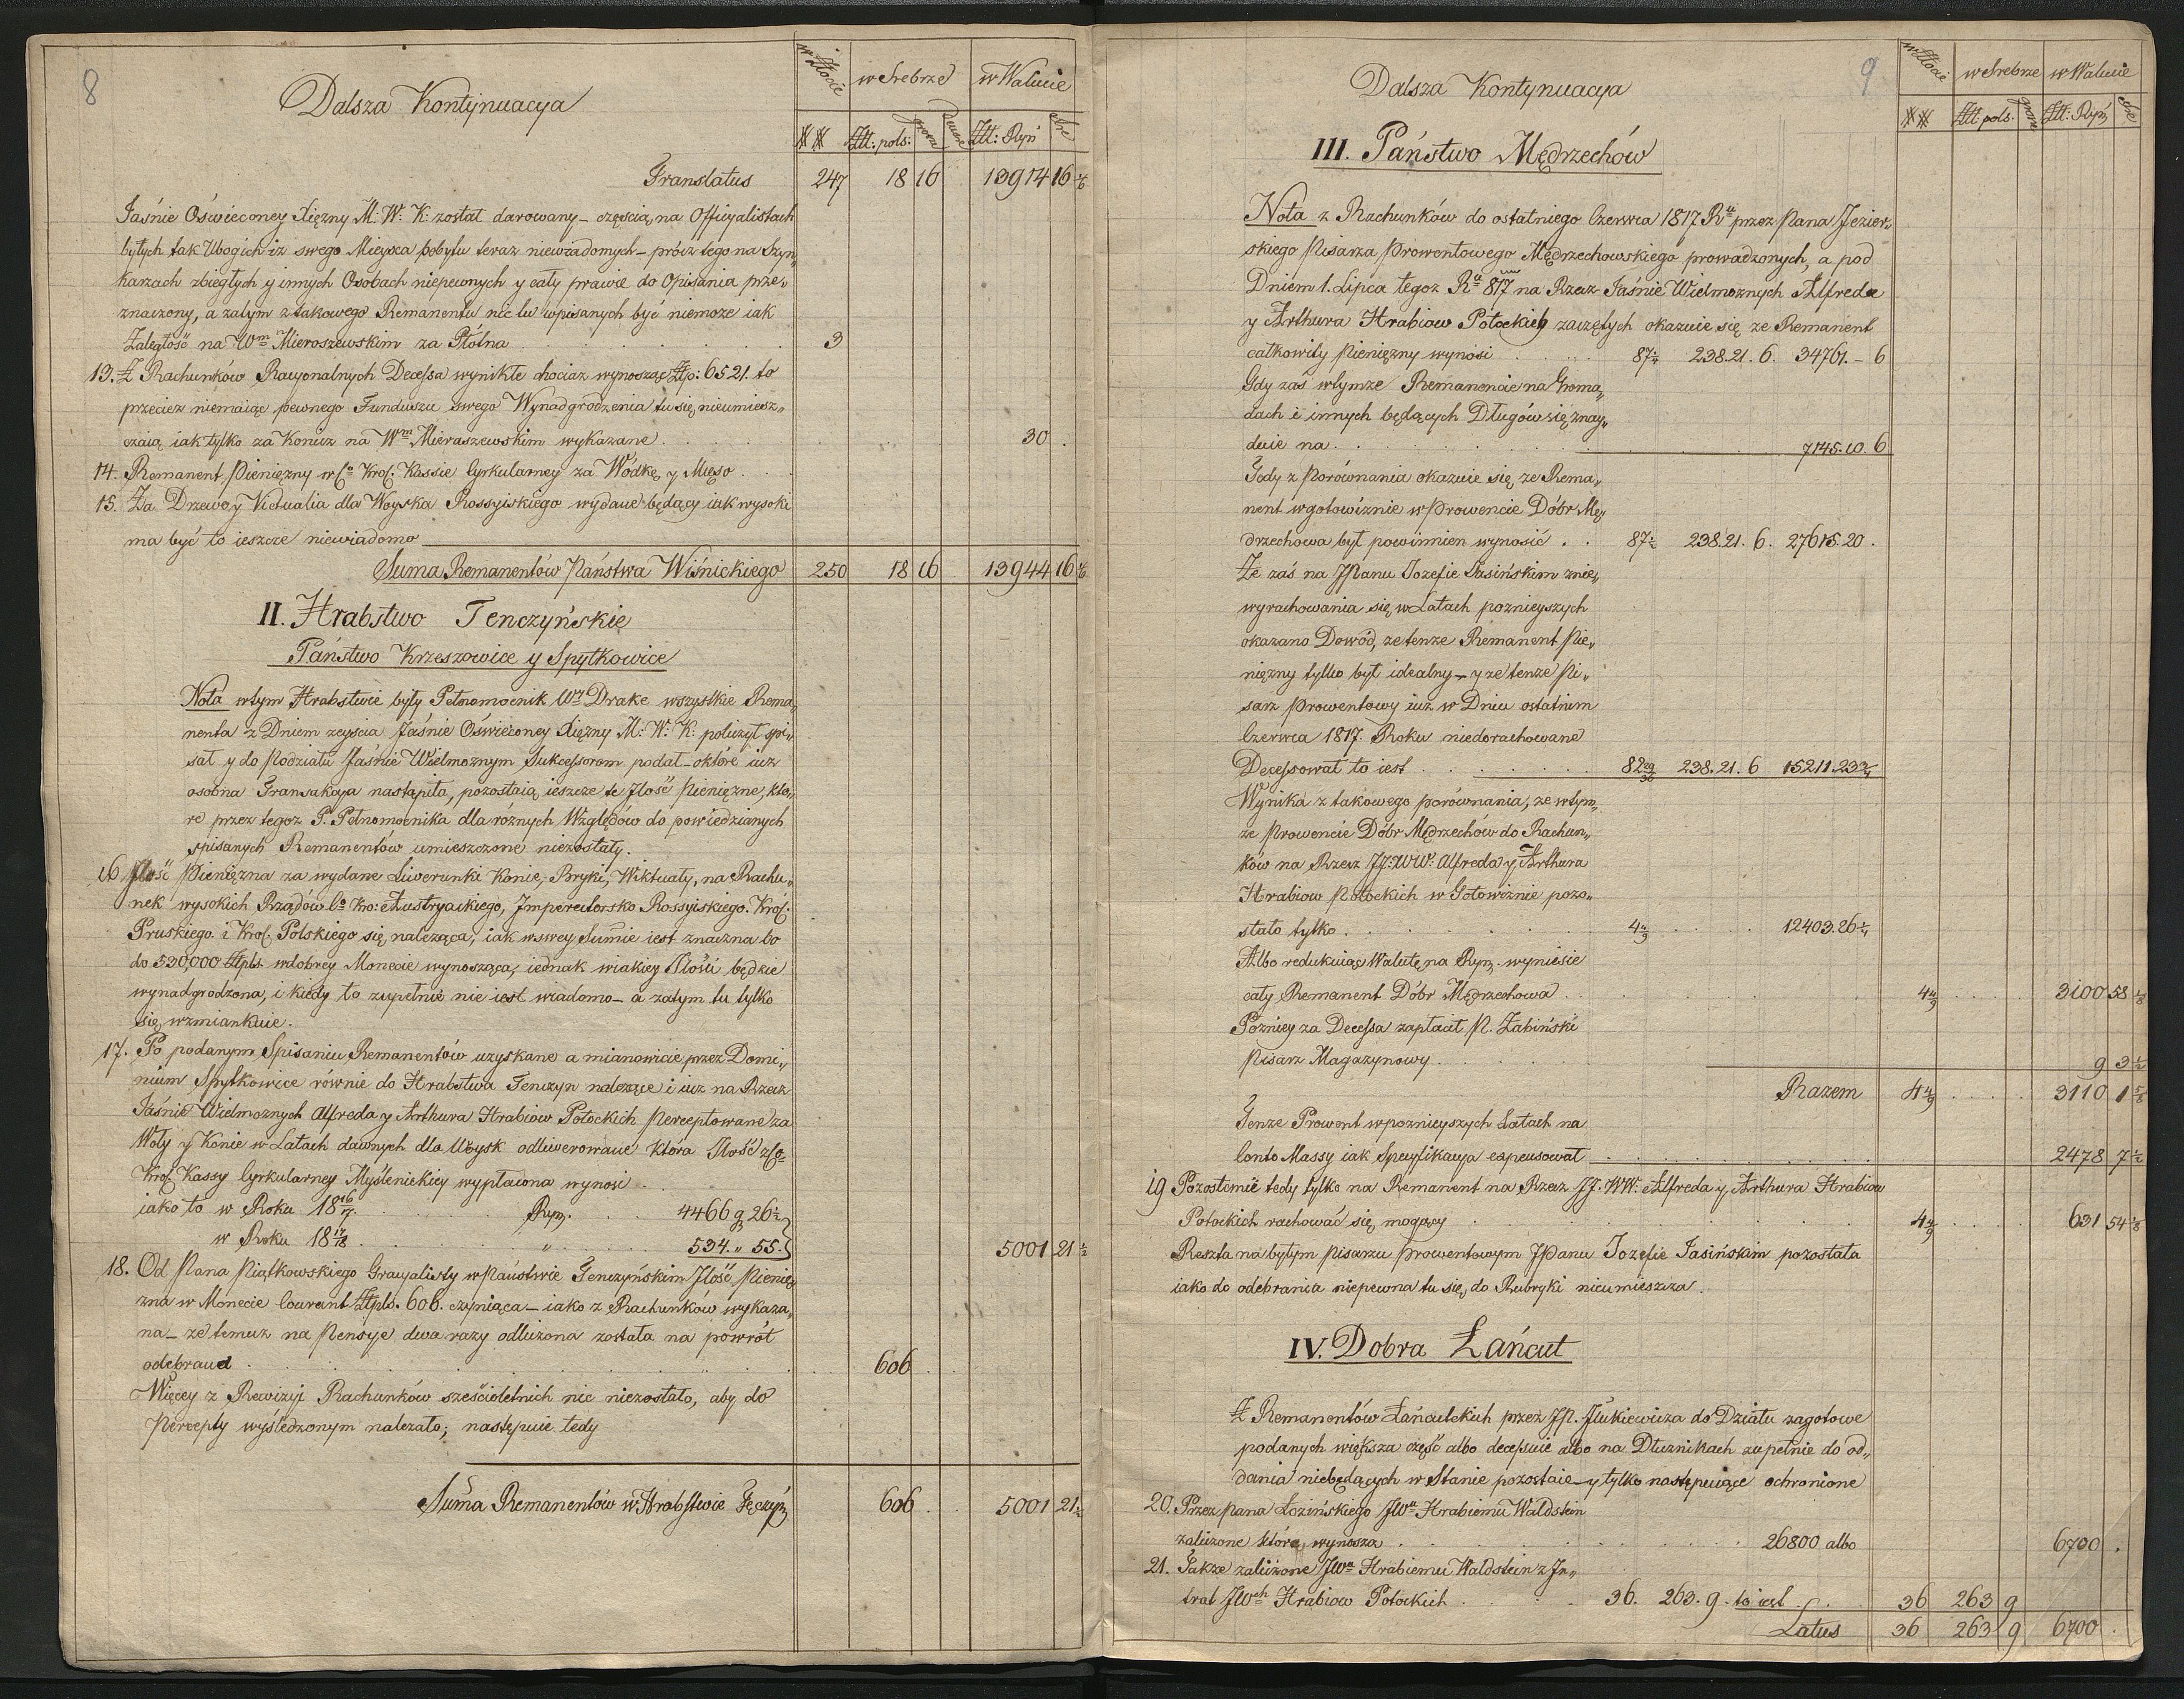 8
Dalsza Kontynuacya
w Złocie w Srebrze w Walucie
## Złt: pols: grosze Denar Złt: Ryń Xre
Translatus 247 18 16 13914 16
Jaśnie Oświeconey Xiężny M: W: K: został darowany – częścią na Officyalistach
byłych tak Ubogich iż swego Mieysca pobytu teraz niewiadomych – prócz tego na Szyn„
karzach zbiegłych y innych Osobach niepewnych y cały prawie do Opisania prze„
znaczony, a zatym z takowego Remanentu nic tu wpisanych być niemoże iak
Zaległość na Wm Mieroszewskim za Płótna . . . 3
13. Z Rachunków Racyonalnych Decessa wynikłe chociaż wynosząc Złp: 6521. to
przecież niemaiąc pewnego Funduszu swego Wynadgrodzenia tu się nieumiesz„
czaią iak tylko za Konicz na Wm Mieraszewskim wykazane . . . 30 .
14. Remanent Pieniężny w Co Krol: Kassie Cyrkularney za Wódkę y Mięso . . .
15. Za Drzewo y Victualia dla Woyska Rossyiskiego wydane będący iak wysoki
ma być to ieszcze niewiadomo
Suma Remanentów Państwa Wiśnickiego 250 18 16 13944 16
II. Hrabstwo Tenczyńskie
Państwo Krzeszowice y Spytkowice
Nota w tym Hrabstwie były Pełnomocnik Wny Drake wszystkie Rema„
nenta z Dniem zeyścia Jaśnie Oświeconey Xiężny M: W: K: policzył spi„
sał y do Podziału Jaśnie Wielmożnym Sukcessorom podał – o które iuż
osobna Transakcya nastąpiła, pozostaią ieszcze te Ilość Pieniężne, któ„
re przez tegoż P. Pełnomocnika dla różnych Względów do powiedzianych
spisanych Remanentów umieszczone niezostały.
16 Ilość Pieniężna za wydane Liwerunki Konie, Bryki, Wiktuały, na Rachu„
nek wysokich Rządów Co Kro: Austryackiego, Imperatorsko Rossyiskiego. Krol:
Pruskiego i Krol: Polskiego się należąca, iak w swey Sumie iest znaczna bo
do 530,000 Złpls w dobrey Monecie wynosząca, iednak w iakiey Ilości będzie
wynadgrodzona, i kiedy to zupełnie nie iest wiadomo – a zatym tu tylko
się wzmiankuie.
17. Po podanym Spisaniu Remanentów uzyskane a mianowicie przez Domi„
nium Spytkowice równie do Hrabstwa Tenczyn należące i iuż na Rzecz
Jaśnie Wielmożnych Alfreda y Arthura Hrabiow Potockich Perceptowane za
Woły y Konie w Latach dawnych dla Woysk odliwerowane która Ilość z Co
Krol: Kassy Cyrkularney Myślenickiey wypłacona wynosi . .
iako to w Roku 18 16/17 . . . Ryń. . . . 4466 g 26 1/2
w Roku 18 17/18 . . . „ . . . 534. „ 55. 5001 21 1/2
18. Od Pana Piątkowskiego Gracyalisty w Państwie Tenczyńskim Ilość Pienię„
żna w Monecie Courant Złpls. 606. czyniąca – iako z Rachunków wykaza„
na – że temuż na Pensye dwa razy odliczona została na powrót
odebrane . . . 606
Więcey z Rewizyi Rachunków sześcioletnich nic niezostało, aby do
Percepty wyśledzonym należało; następuie tedy
Suma Remanentów w Hrabstwie Tęczyń 606 . . 5001 21 1/2
9
Dalsza Kontynuacya
w Złocie w Srebrze w Walucie
## Złt: pols. grosze Złt: Ryń Xre
III. Państwo Mędrzechów
Nota z Rachunków do ostatniego Czerwca 1817 Ru przez Pana Jezier„
skiego Pisarza Prowentowego Mędrzechowskiego prowadzonych, a pod
Dniem 1. Lipca tegoż Ru 817 na Rzecz Jaśnie Wielmożnych Alfreda
y Arthura Hrabiow Potockich zaczętych okazuie się że Remanent
całkowity Pieniężny wynosi . . . 87 238.21.6. 34761. – 6
Gdy zaś w tymże Remanencie na Groma„
dach i innych będących Długów się znay„
duie na . . . 7145.10.6
Tedy z Porównania okazuie się, że Rema„
nent w gotowiznie w Prowencie Dóbr Mę„
drzechowa był powinnien wynosić . . 87 238.21.6. 27615.20 .
Że zaś na JPanu Jozefie Jasińskim z nie„
wyrachowania się w Latach poznieyszych
okazano Dowód, że tenże Remanent Pie„
niężny tylko był idealny – y że tenże Pi„
sarz Prowentowy iuż w Dniu ostatnim
Czerwca 1817. Roku niedorachowane
Decessował to iest . . . 82 29/36 238.21.6 15211.23 3/4
Wynika z takowego porównania, że w tym„
że Prowencie Dóbr Mędrzechów do Rachun„
ków na Rzecz JJ: WW: Alfreda y Arthura
Hrabiow Potockich w Gotowiznie pozo„
stało tylko . . . 4 4/9 . . . 12403.26 1/4
Albo redukuiąc Walutę na Ryń. wyniesie
cały Remanent Dóbr Mędrzechowa . . . 4 4/9 . . . 3100 58
Pózniey za Decessa zapłacił P. Żabiński
Pisarz Magazynowy . . . 9 3 1/2
Razem 4 4/9 . . . 3110 1 5/8
Tenże Prowent w poznieyszych Latach na
Conto Massy iak Specyfikacya expensował . . . 2478 7 1/2
19 Pozostanie tedy tylko na Remanent na Rzecz JJ. WW: Alfreda y Arthura Hrabiow
Potockich rachować się mogący . . . 4 4/9 . . . 631 54 1/8
Reszta na byłym Pisarzu Prowentowym JPanu Jozefie Jasińskim pozostała
iako do odebrania niepewna tu się do Rubryki nieumieszcza.
IV. Dobra Łańcut
Z Remanentów Łańcutckich przez JP. Ilukiewicza do Działu zagotowe
podanych większa część albo decessuie albo na Dłużnikach zupełnie do od„
dania niebędących w Stanie pozostaie – y tylko następuiące ochronione
20. Przez Pana Łozińskiego JWu Hrabiemu Waldstein
zaliczone które wynosza . . . 26800 albo 6700 .
21. Także zaliczone JWu Hrabiemu Waldstein z In„
trat JWch Hrabiow Potockich . . . 36. 263. 9. to iest . . 36 263 9
Latus 36 263 9 6700 .